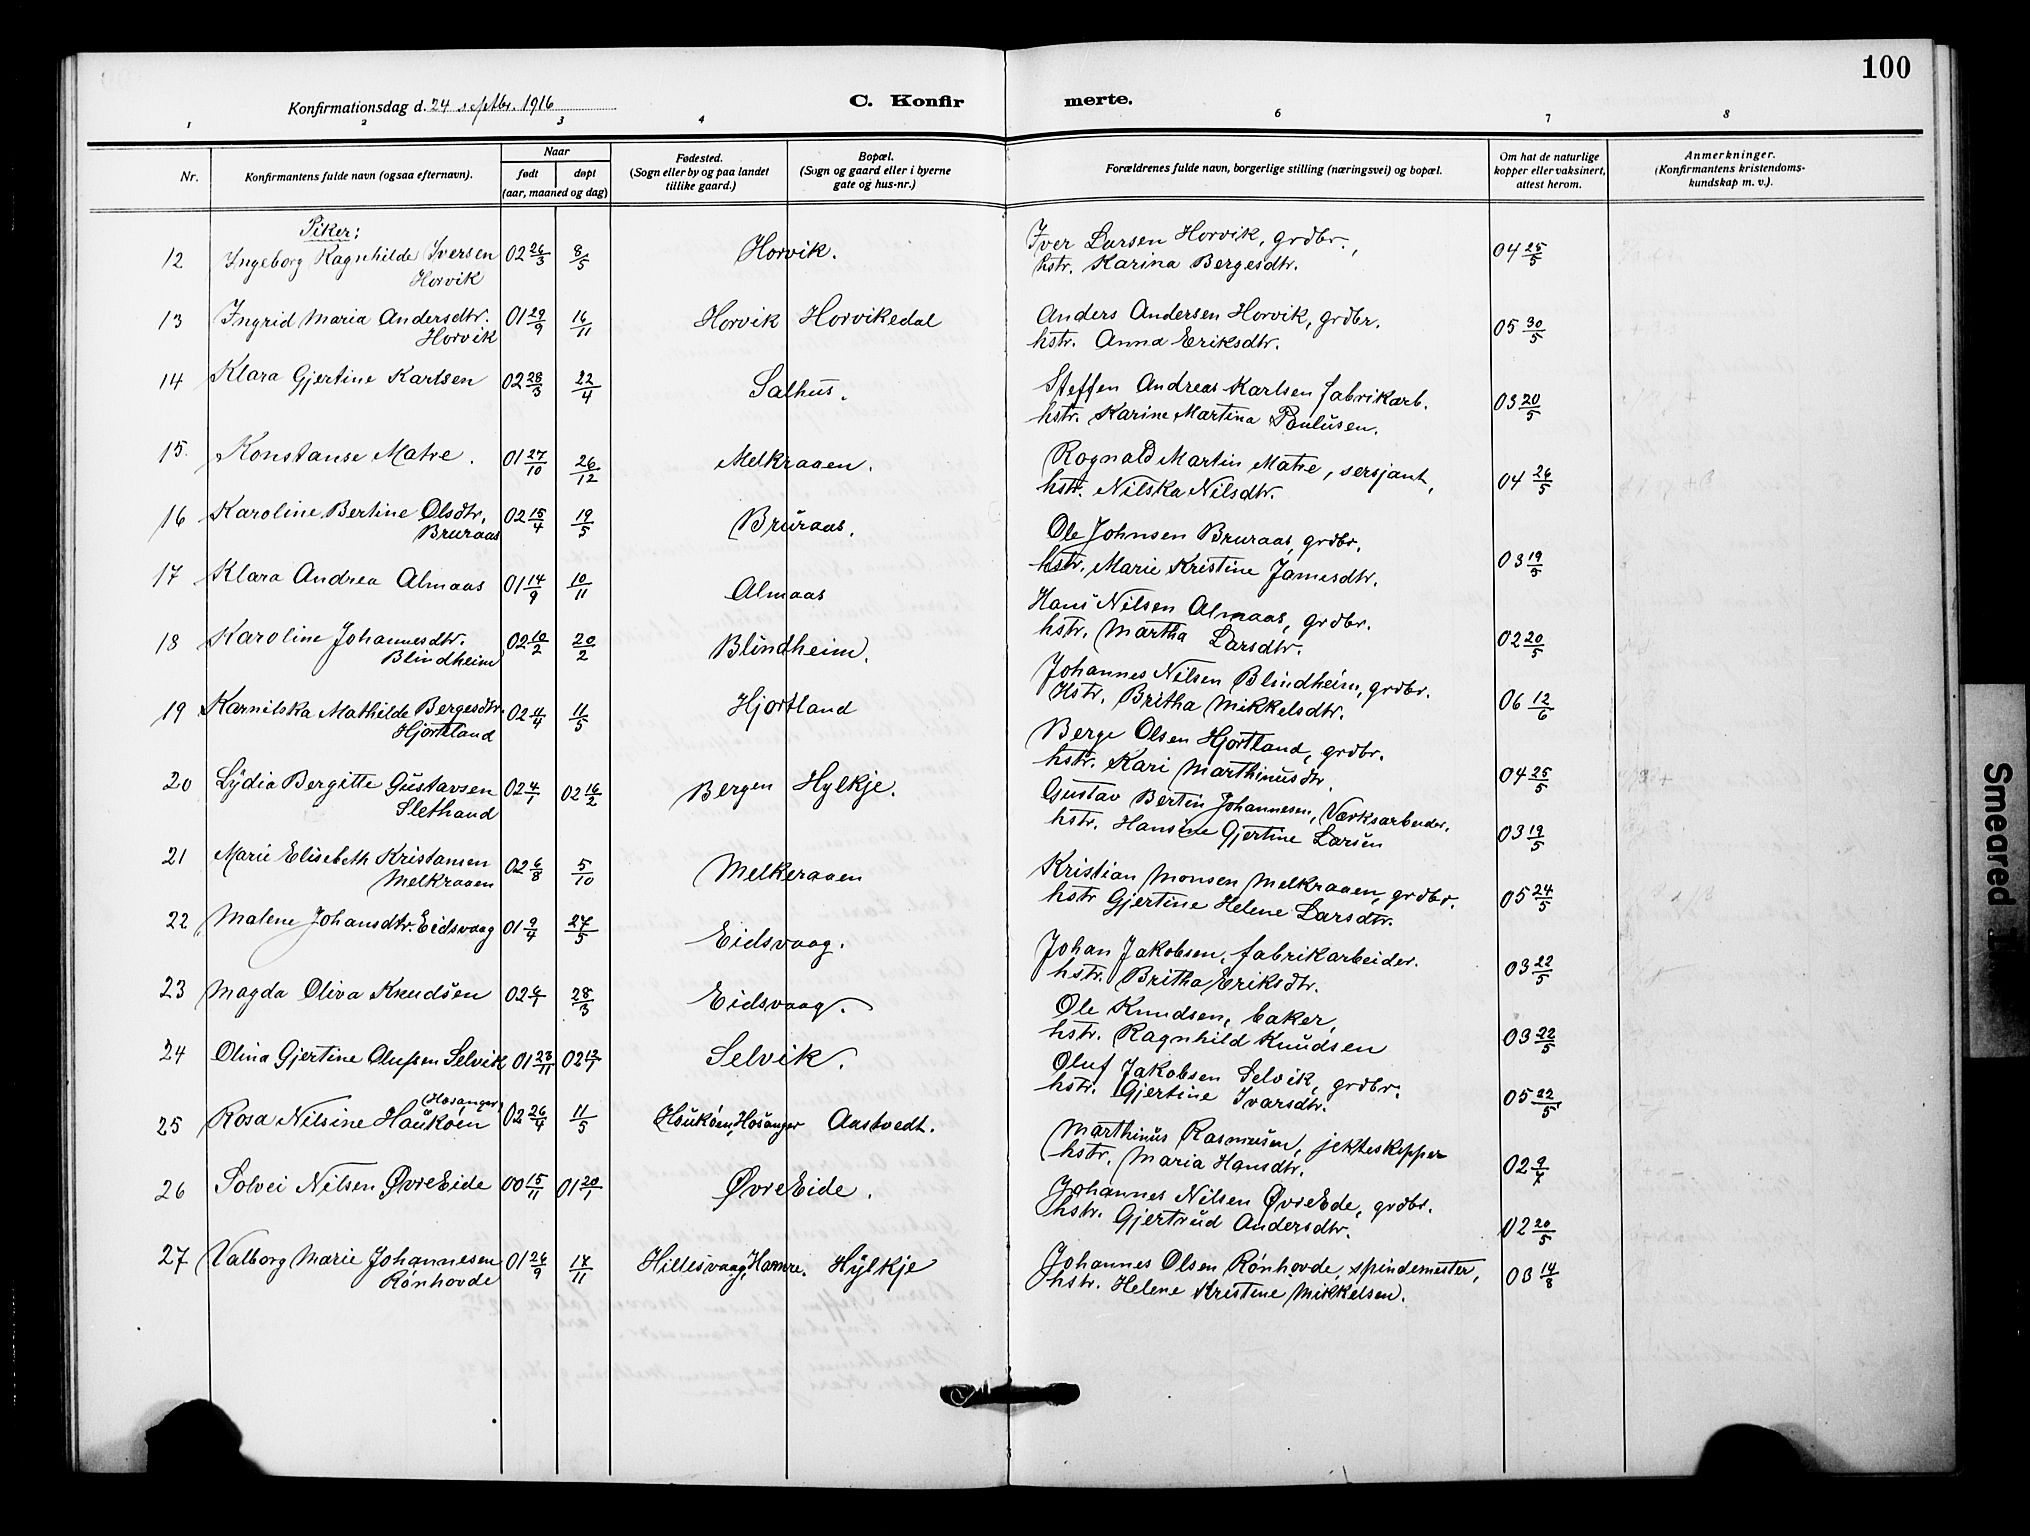 100
Konfirmationsdag d. 24 septbr. 1916
C. Konfirmerte.
1 2 3 4 6 7 8
Nr.
Konfirmantens fulde navn (ogsaa efternavn).
Naar
født døpt
(aar, maaned og dag)
Fødested.
(Sogn eller by og paa landet
tillike gaard.)
Bopæl.
(Sogn og gaard eller i byerne
gate og hus-nr.)
Forældrenes fulde navn, borgerlige stilling (næringsvei) og bopæl.
Om hat de naturlige
kopper eller vaksinert,
attest herom.
Anmerkninger.
(Konfirmantens kristendoms-
kundskap m. v.).
Piker:
12 Ingeborg Ragnhilde Iversen 02 26/3 8/5 Horvik. Iver Larsen Horvik, grdbr., 04 25/5
Horvik hstr. Karina Bergesdtr.
13 Ingrid Maria Andersdtr. 01 29/9 16/11 Horvik Horvikedal Anders Andersen Horvik, grdbr. 05 30/5
Horvik hstr. Anna Eriksdtr.
14 Klara Gjertine Karlsen 02 28/3 22/4 Salhus. Steffen Andreas Karlsen fabrikarb. 03 20/5
hstr. Karine Martina Paulusen.
15. Konstanse Matre. 01 27/10 26/12 Melkraaen. Rognald Martin Matre, sersjant, 04 26/5
hstr. Nilska Nilsdtr.
16 Karoline Bertine Olsdtr, 02 15/4 19/5 Bruraas. Ole Johnsen Bruraas, grdbr. 03 19/5
Bruraas hstr. Marie Kristine Jamesdtr.
17 Klara Andrea Almaas 01 14/9 10/11 Almaas Hans Nilsen Almaas, grdbr. 02 20/5
hstr. Martha Larsdtr.
18 Karoline Johannesdtr. 02 10/2 20/2 Blindheim. Johannes Nilsen Blindheim, grdbr. 06 12/6
Blindheim Hstr. Britha Mikkelsdtr.
19 Karnilska Mathilde Bergesdtr. 02 4/4 11/5 Hjortland Berge Olsen Hjortland, grdbr. 04 25/5
Hjortland hstr. Kari Marthinusdtr.
20 Lydia Bergitte Gustavsen 02 4/1 02 16/2 Bergen Hylkje. Gustav Bertin Johannesen, Værksarbeider. 03 19/5
Slethaud hstr. Hansine Gjertine Larsen
21 Marie Elisebeth Kristansen 02 6/8 5/10 Melkeraaen Kristian Monsen Melkraaen, grdbr. 05 24/5
Melkraaen hstr Gjertine Helene Larsdtr.
22 Malene Johansdtr. Eidsvaag 01 9/4 27/5 Eidsvaag. Johan Jakobsen, fabrikarbeider. 03 22/5
hstr. Britha Eriksdtr.
23 Magda Oliva Knudsen 02 6/1 28/3 Eidsvaag. Ole Knudsen, baker, 03 22/5
hstr. Ragnhild Knudsen
24 Olina Gjertine Olufsen Selvik 01 23/11 02 12/1 Selvik. Oluf Jakobsen Selvik, grdbr. 05 22/5
hstr. Gjertine Ivarsdtr.
(Hosanger)
25 Rosa Nilsine Haukøen 02 26/4 11/5 Haukøen, Hosanger Aastvedt. Marthinus Rasmusen, jekteskipper 02 9/7
hstr. Maria Hansdtr.
26 Solvei Nilsen ØvreEide 00 15/11 01 20/1 ØvreEide. Johannes Nilsen ØvreEde, grdbr. 02 20/5
hstr. Gjertrud Andersdtr.
27 Valborg Marie Johannesen 01 26/9 17/11 Hillesvaag, Hamre. Hylkje Johannes Olsen Rønhovde, spindemester, 03 14/8
Rønhovde hstr. Helene Kristine Mikkelsen.
Smeared